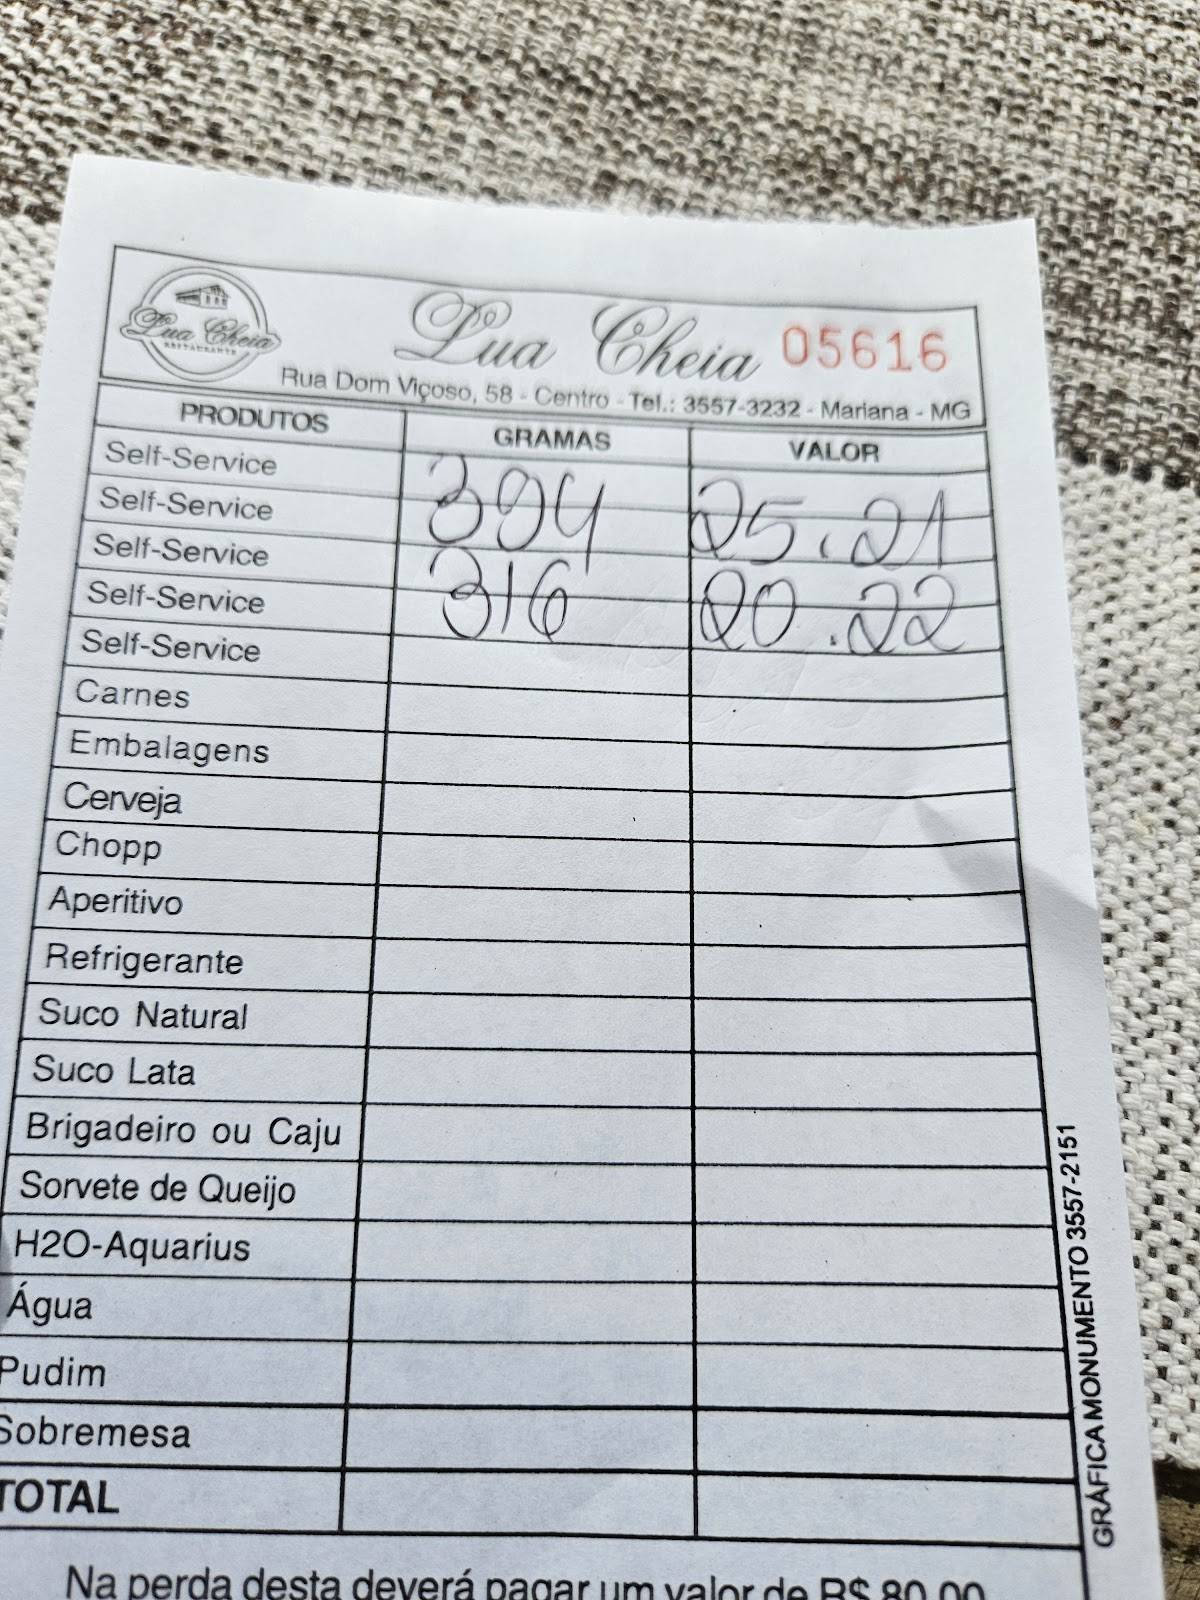 Lua Cheia
RESTAURANTE
Lua Cheia 05616
Rua Dom Viçoso, 58 - Centro - Tel.: 3557-3232 - Mariana - MG
PRODUTOS GRAMAS VALOR
Self-Service
Self-Service 394 25.21
Self-Service
Self-Service 316 20.22
Self-Service
Carnes
Embalagens
Cerveja
Chopp
Aperitivo
Refrigerante
Suco Natural
Suco Lata
Brigadeiro ou Caju
Sorvete de Queijo
H2O-Aquarius
Água
Pudim
Sobremesa
TOTAL
Na perda desta deverá pagar um valor de R$ 80,00
GRÁFICA MONUMENTO 3557-2151